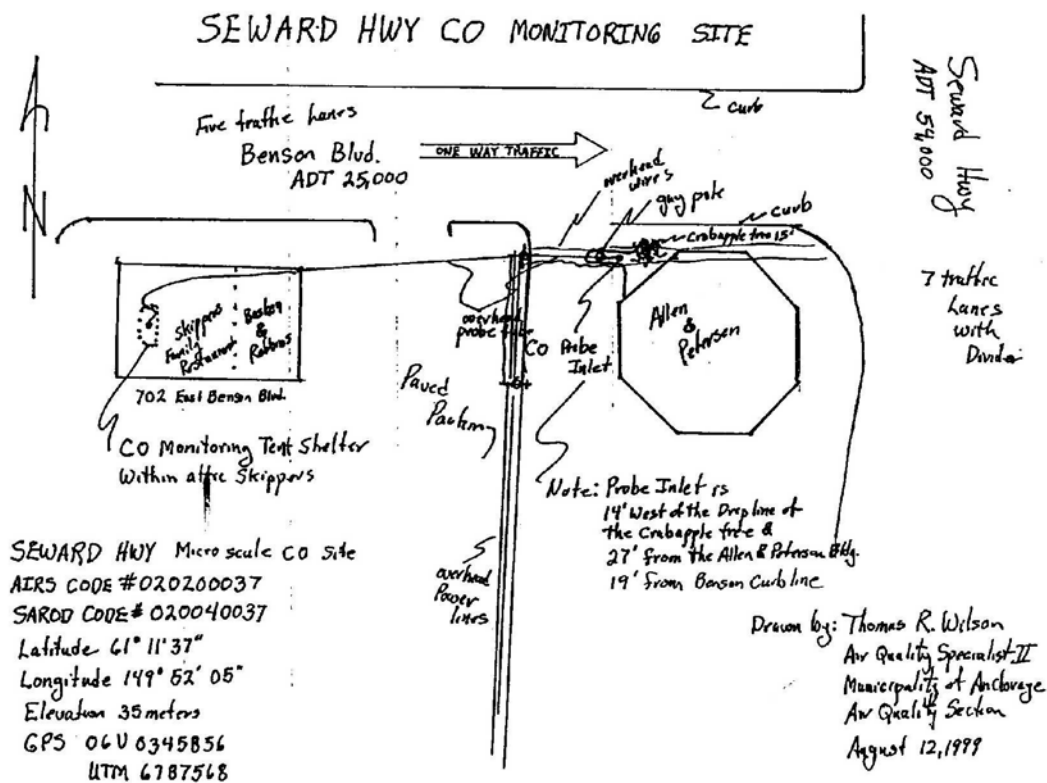 SEWARD HWY CO MONITORING SITE
N
curb
Five traffic Lanes
Benson Blvd.
ADT 25,000
ONE WAY TRAFFIC
Seward Hwy
ADT 54,000
overhead
wires
guy pole
curb
Crabapple tree 15'
7 traffic
Lanes
with
Divider
Skippers
Family
Restaurant
Baskin
&
Robbins
702 East Benson Blvd.
overhead
probe tube
CO Probe
Inlet
Allen
&
Petersen
Paved
Parking
CO Monitoring Tent Shelter
Within attic Skippers
Note: Probe Inlet is
14' West of the Drepline of
the Crabapple tree &
27' from the Allen & Peterson Bldg.
19' from Benson Curbline
overhead
Power
lines
SEWARD HWY Micro scale CO Site
AIRS CODE #020200037
SAROD CODE# 020040037
Latitude 61° 11' 37"
Longitude 149° 52' 05"
Elevation 35 meters
GPS 06V 0345856
UTM 6787568
Drawn by: Thomas R. Wilson
Air Quality Specialist II
Municipality of Anchorage
Air Quality Section
August 12, 1999